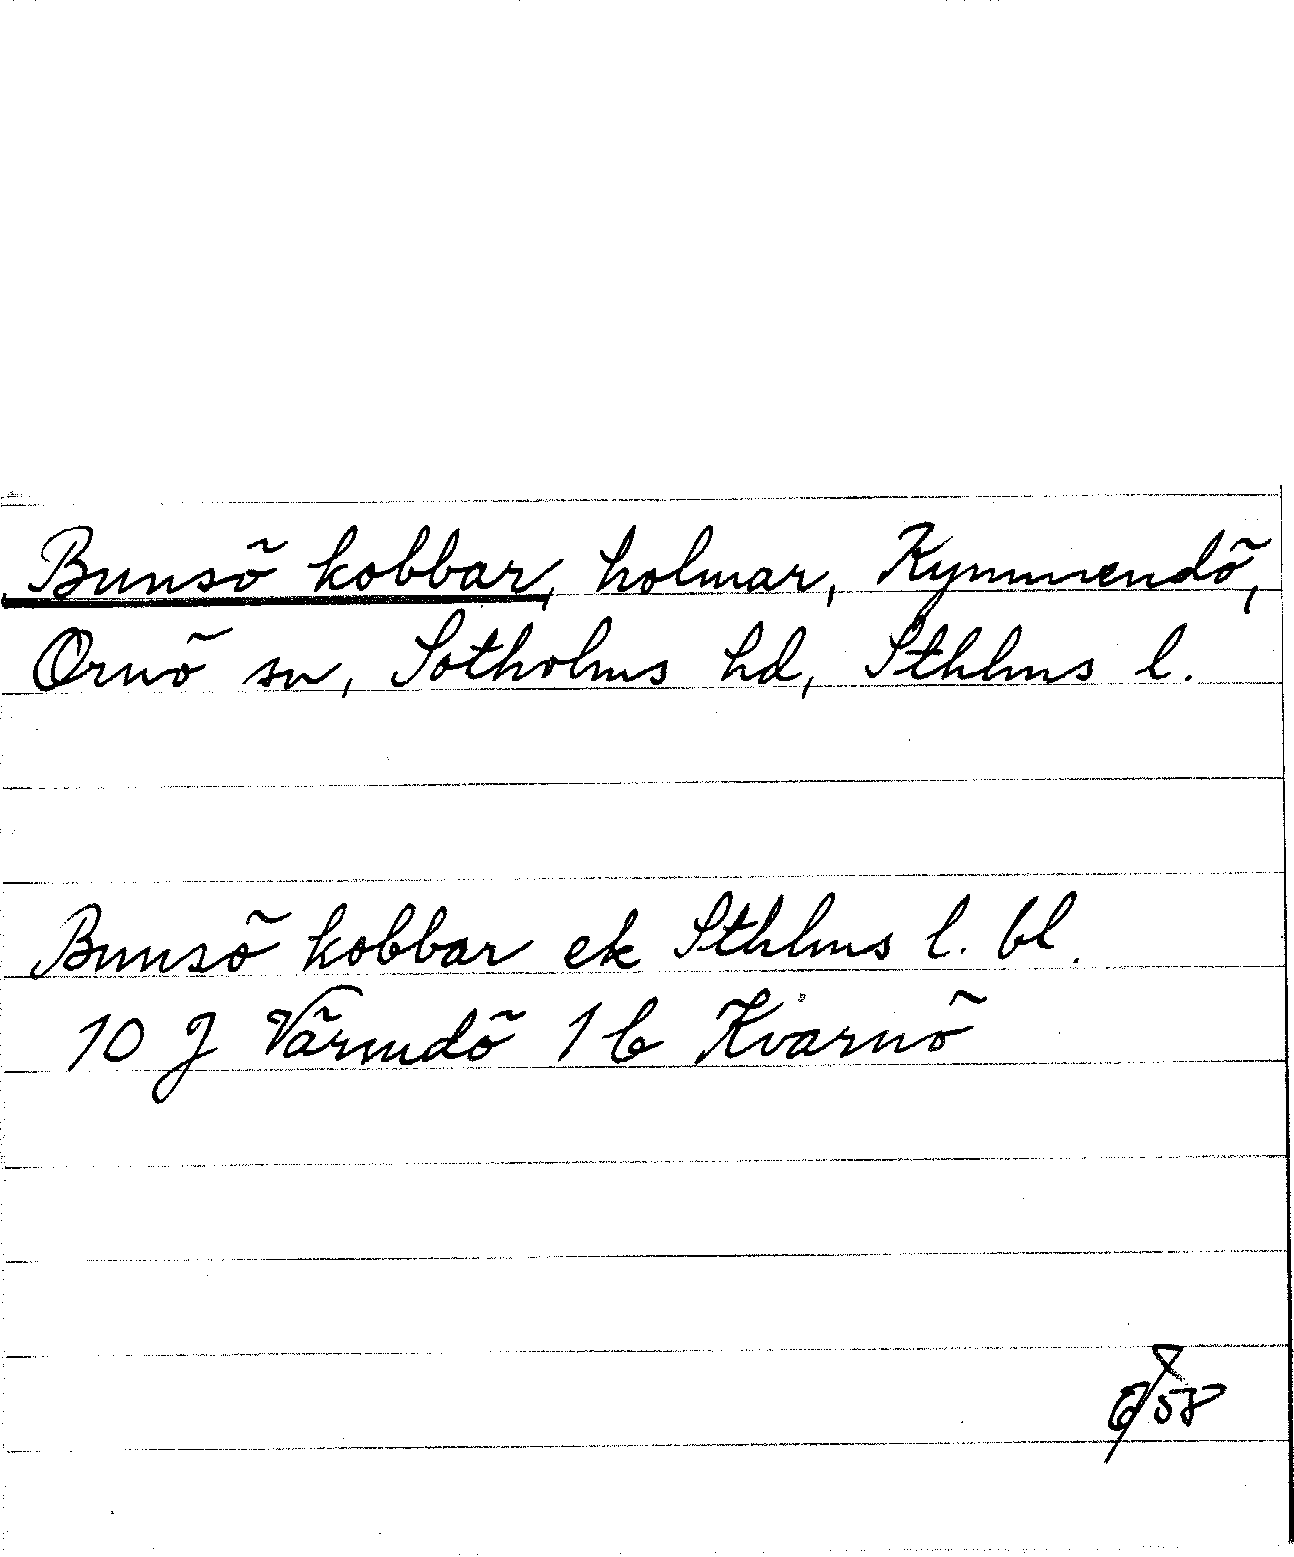 Bunsö kobbar, holmar, Kymmendö,
Ornö sn, Sotholms hd, Sthlms l.
Bunsö kobbar ek Sthlms l. bl.
10 J Värmdö 1 b Kvarnö
58